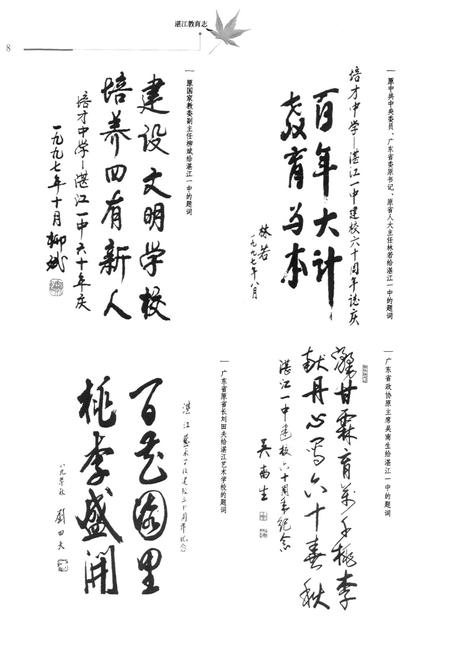 湛江教育志
8
原中共中央委员、广东省委原书记、原省人大主任林若给湛江一中的题词
培才中学—湛江一中建校六十周年志庆
百年大计
教育为本
林若
一九九七年八月
原国家教委副主任柳斌给湛江一中的题词
建设文明学校
培养四有新人
培才中学—湛江一中六十年庆
一九九七年十月 柳斌
广东省政协原主席吴南生给湛江一中的题词
甘霖育万千桃李
献丹心写六十春秋
湛江一中建校六十周年纪念
吴南生
广东省原省长刘田夫给湛江艺术学校的题词
湛江艺术学校建校三十周年纪念
百花园里
桃李盛开
刘田夫